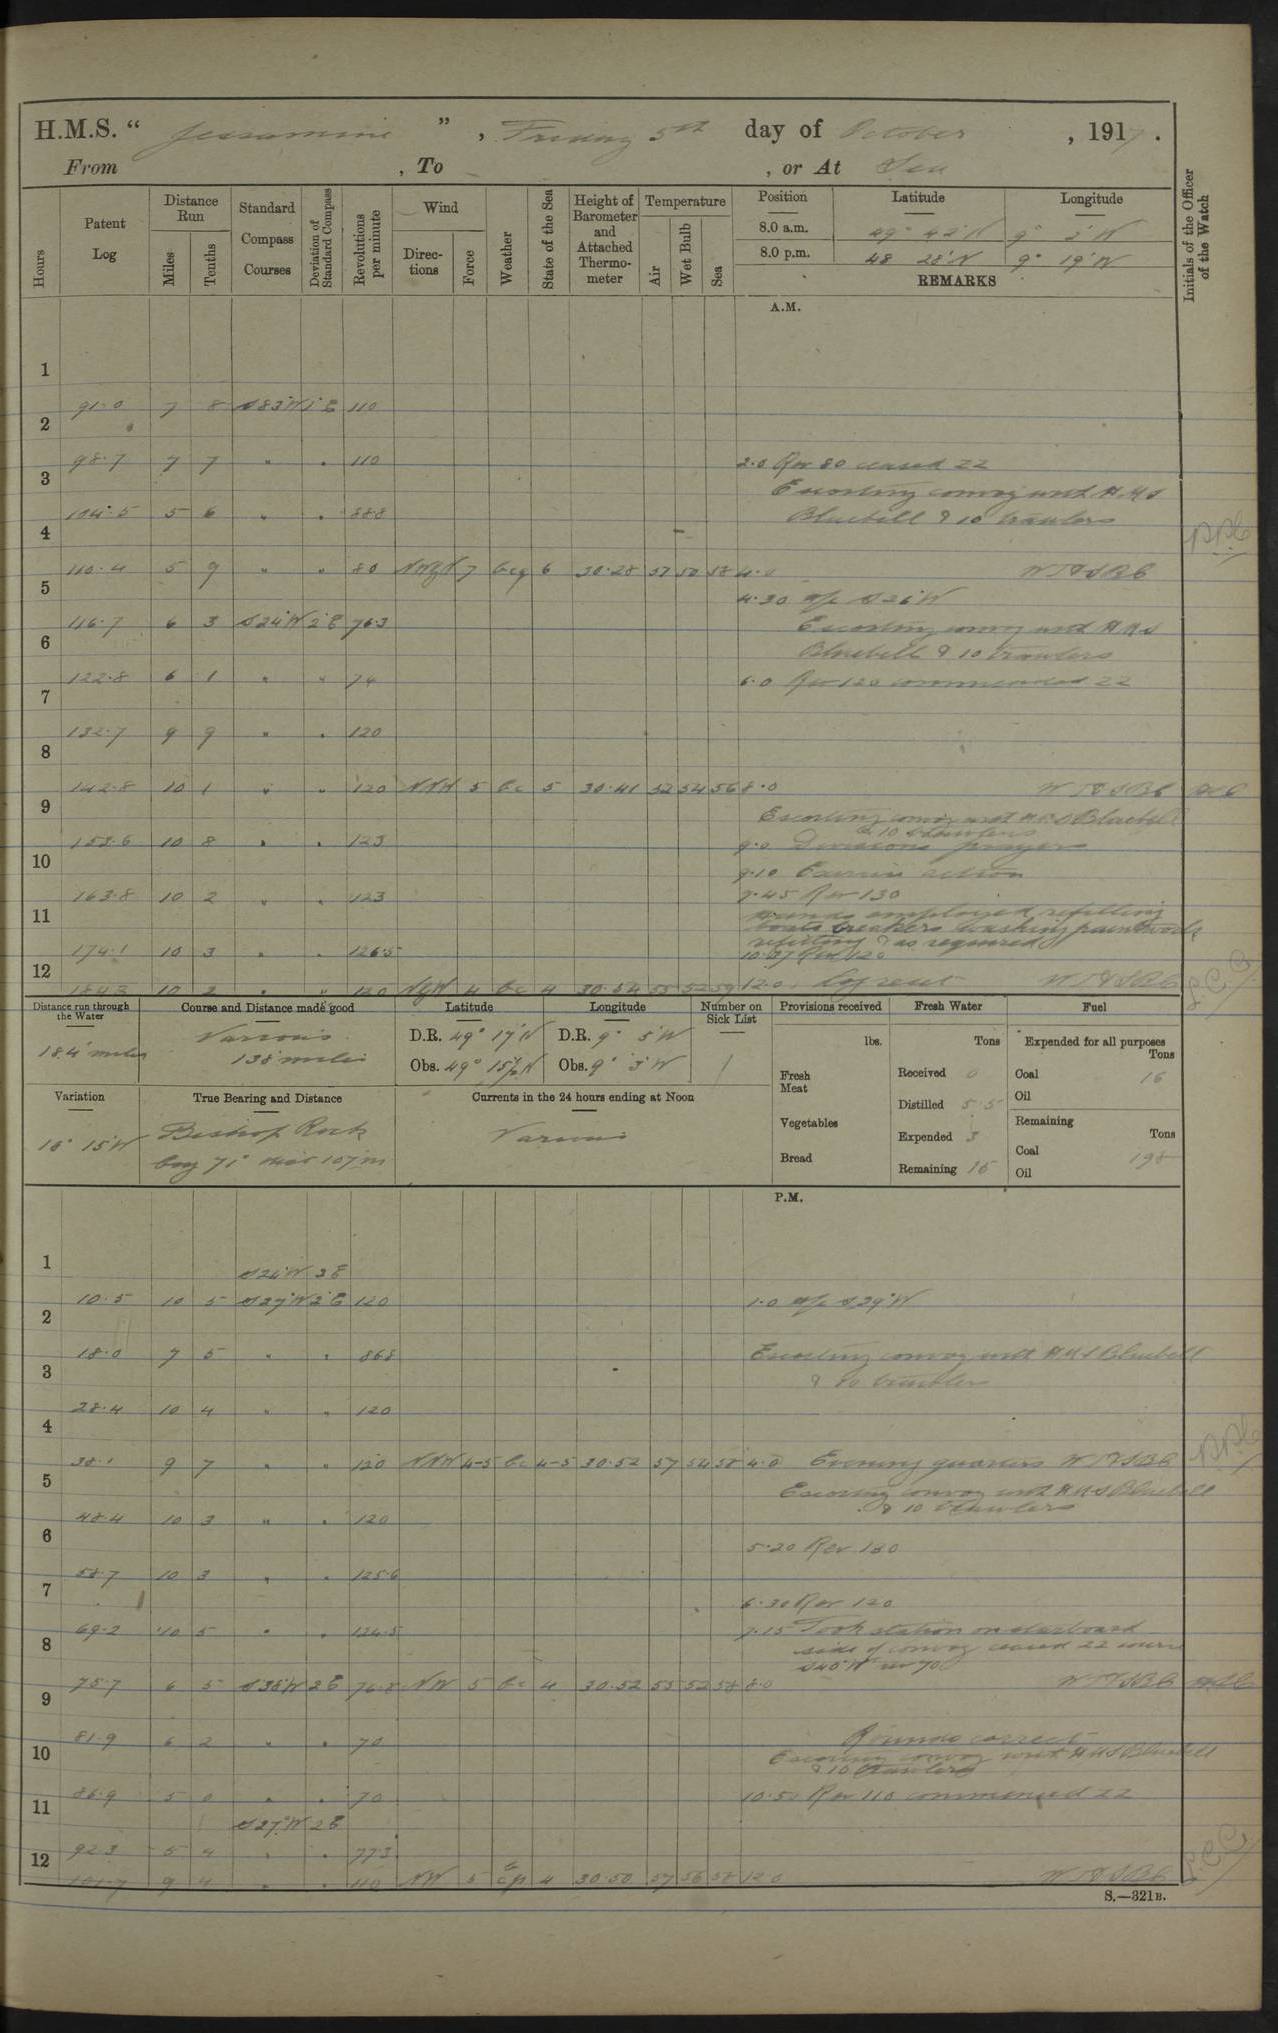 H.M.S. " Jessamine " , Friday 5th day of October , 1917 .
From , To , or At Sea
Hours
Patent Log
Distance Run
Miles
Tenths
Standard Compass Courses
Deviation of Standard Compass
Revolutions per minute
Wind
Directions
Force
Weather
State of the Sea
Height of Barometer and Attached Thermometer
Temperature
Air
Wet Bulb
Sea
Position Latitude Longitude
8.0 a.m. 49° 42'N 9° 2'W
8.0 p.m. 48 28'N 9° 19'W
REMARKS
Initials of the Officer of the Watch
A.M.
1
91.0 7 8 S83°W 1°E 110
2
98.7 7 7 " " 110 2.0 Rev 80 ceased ZZ
3
Escorting convoy with H.M.S
104.5 5 6 " " 88.8 Bluebell & 10 trawlers
4
110.4 5 9 " " 80 7 bcq 6 30.28 58 4.0
5
4.30 A/c S26°W
116.7 6 3 S24°W 2°E 76.3 Escorting convoy with HMS
6
Bluebell & 10 trawlers
122.8 6 1 " " 74 6.0 Rev 120 commenced ZZ
7
132.7 9 9 " " 120
8
142.8 10 1 " " 120 NNW 5 bc 5 30.41 52 54 56 8.0
9
Escorting convoy with HMS Bluebell
& 10 trawlers
153.6 10 8 " " 123 9.0 Divisions prayers
10
9.10 Exercise action
163.8 10 2 " " 123 9.45 Rev 130
11
Hands employed refilling
boats breakers washing paintwork
refitting & as required
174.1 10 3 " " 126.5 10.37 Rev 120
12
184.3 10 2 " " 120 NyW 4 bc 4 30.54 55 52 59 12.0
Distance run through the Water
184 miles
Course and Distance made good
Various
138 miles
Latitude
D.R. 49° 17'N
Obs. 49° 15½'N
Longitude
D.R. 9° 5'W
Obs. 9° 3'W
Number on Sick List
1
Provisions received
lbs.
Fresh Meat
Vegetables
Bread
Fresh Water
Tons
Received 0
Distilled 5.5
Expended 3
Remaining 15
Fuel
Expended for all purposes
Tons
Coal 16
Oil
Remaining
Tons
Coal 198
Oil
Variation
16° 15'W
True Bearing and Distance
Bishop Rock
brg 71° dist 107m
Currents in the 24 hours ending at Noon
Various
P.M.
1
S24°W 2E
10.5 10 5 S27°W 2°E 120 1.0 A/c S29°W
2
18.0 7 5 " " 86.8 Escorting convoy with HMS Bluebell
3
& 10 trawlers
28.4 10 4 " " 120
4
38.1 9 7 " " 120 NNW 4-5 bc 4-5 30.52 57 54 58 4.0 Evening quarters
5
Escorting convoy with HMS Bluebell
& 10 trawlers
48.4 10 3 " " 120
6
5.20 Rev 130
58.7 10 3 " " 125.6
7
6.30 Rev 120
69.2 10 5 " " 124.5 7.15 Took station on starboard
8
side of convoy ceased ZZ course
S40°W rev 70
75.7 6 5 S38°W 2E 76.8 NW 5 bc 4 30.52 55 52 58 8.0
9
81.9 6 2 " " 70 Rounds correct
10
Escorting convoy with HMS Bluebell
& 10 trawlers
86.9 5 0 " " 70 10.50 Rev 110 commenced ZZ
11
S27°W 2E
92.3 5 4 " " 77.3
12
101.7 9 4 " " 110 NW 5 4 30.50 57 56 58 12.0
S.—321B.